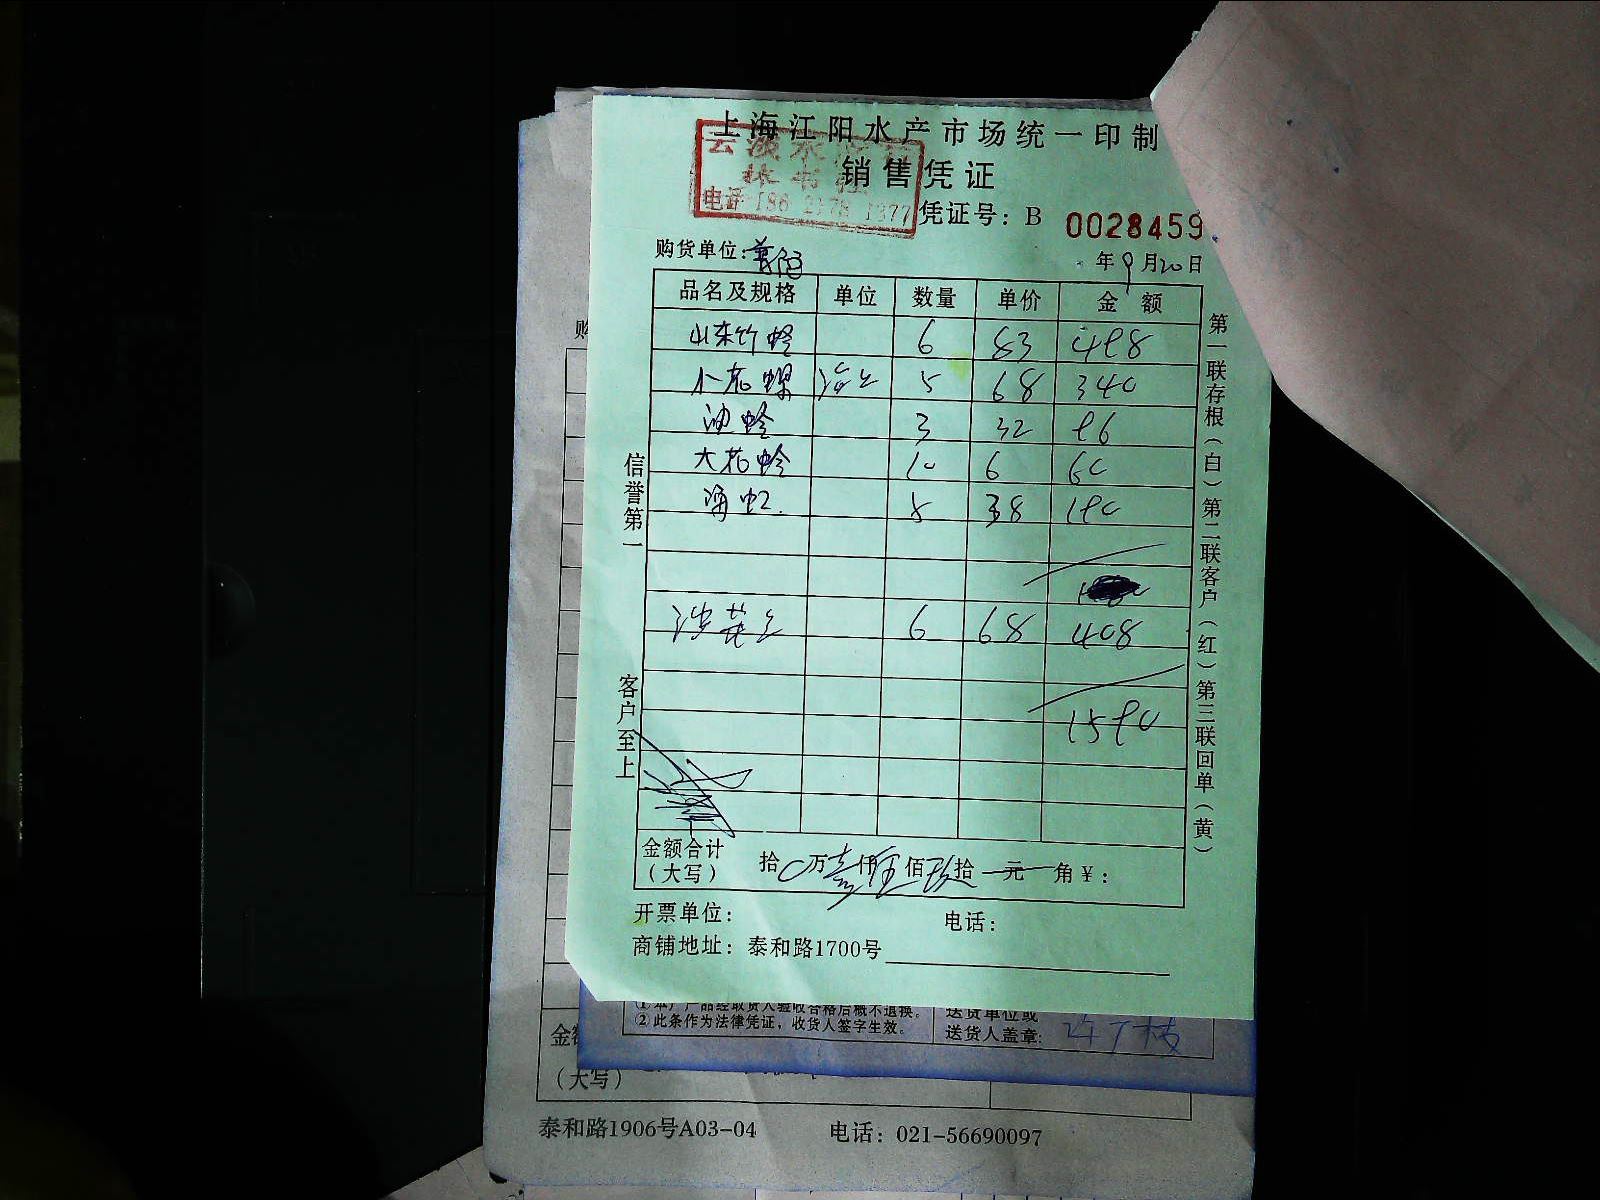 上海江阳水产市场统一印制
销售凭证
电话 186
凭证号: B 0028459
购货单位:
年 9月20日
品名及规格 单位 数量 单价 金额
山东竹蛏 6 83 498
小花螺 5 68 340
油蛤 3 32 96
大花蛤 10 6 60
海虹 5 38 190
6 68 408
1590
信誉第一
客户至上
第一联存根(白)第二联客户(红)第三联回单(黄)
金额合计
(大写) 拾0万壹仟伍佰玖拾 元 角¥:
开票单位: 电话:
商铺地址: 泰和路1700号
①本厂产品经取货人验收合格后概不退换。
②此条作为法律凭证,收货人签字生效。
送货单位或
送货人盖章:
购
金额
(大写)
泰和路1906号A03-04 电话: 021-56690097